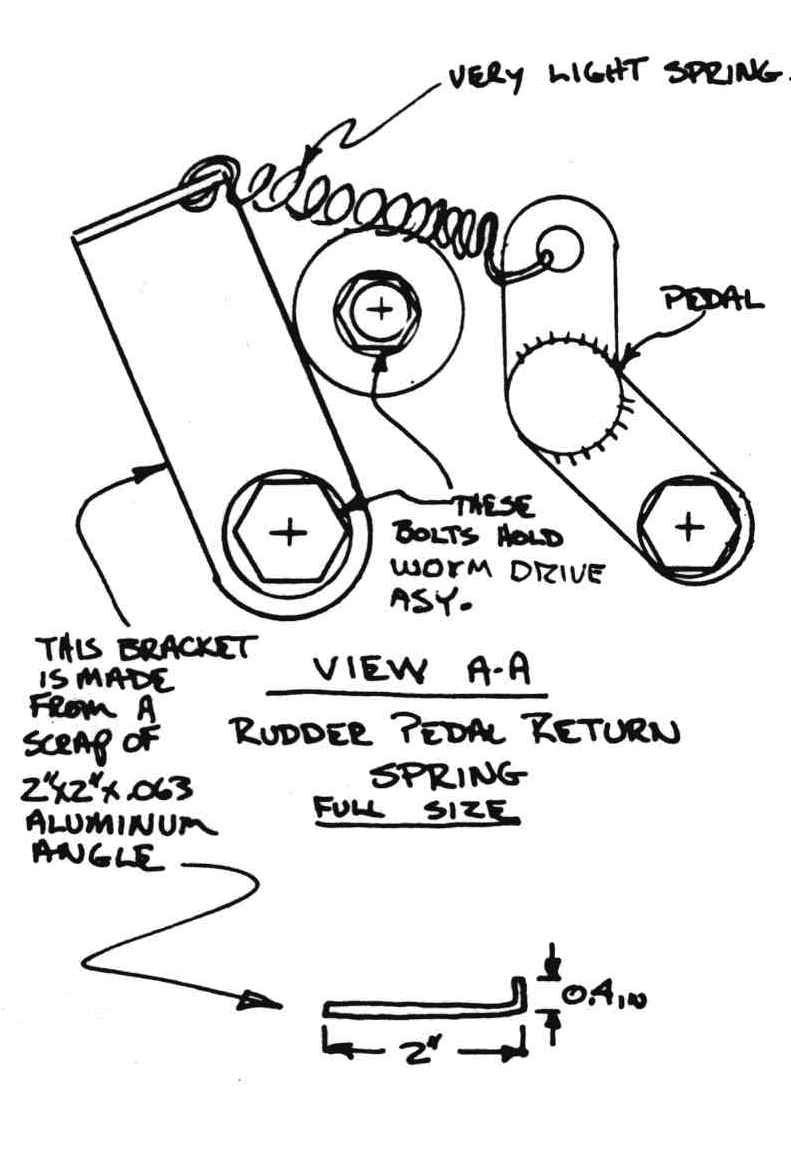 VERY LIGHT SPRING.
PEDAL
THESE
BOLTS HOLD
WORM DRIVE
ASY.
THIS BRACKET
IS MADE
FROM A
SCRAP OF
2"x2"x.063
ALUMINUM
ANGLE
VIEW A-A
RUDDER PEDAL RETURN
SPRING
FULL SIZE
0.4 IN
2"